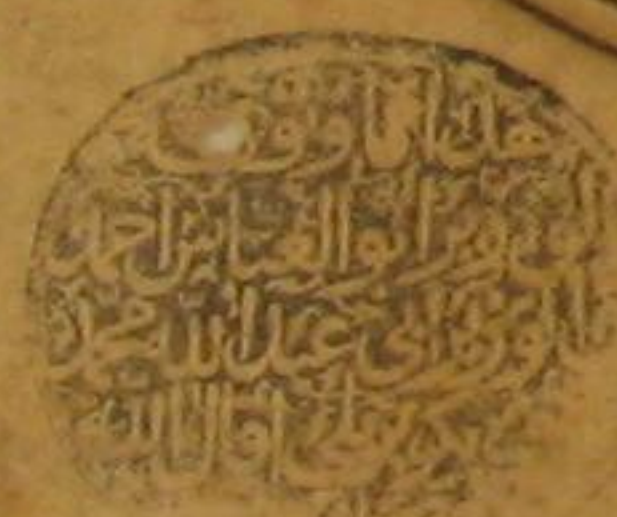 هذا مما وقف
الوزير ابو العباس احمد
ابن الوزير ابي عبد الله محمد
اقال الله